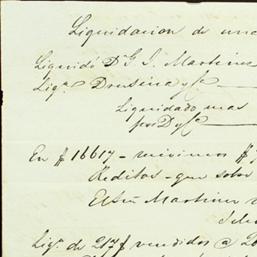 Liquidacion de una
Liquidó Dn G. S. Martinez
Liqn Drusina y Ca
Liquidado mas
por D y Ca
En $ 16617 - mismos $
Reditos - que sobre
El Sr Martinez
Liqn de 217 $ vendidos @